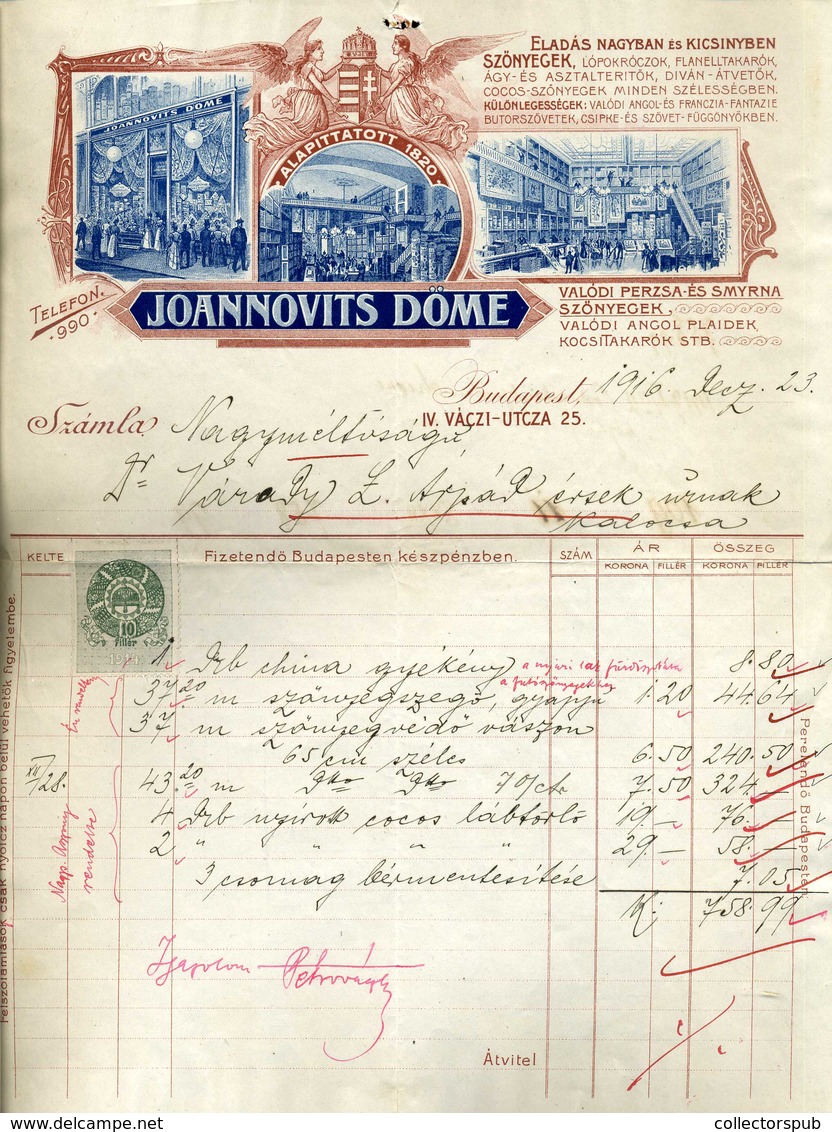 ELADÁS NAGYBAN ÉS KICSINYBEN
SZŐNYEGEK, LÓPOKRÓCZOK, FLANELLTAKARÓK,
ÁGY- ÉS ASZTALTERITŐK, DIVÁN-ÁTVETŐK,
COCOS-SZŐNYEGEK MINDEN SZÉLESSÉGBEN.
KÜLÖNLEGESSÉGEK: VALÓDI ANGOL- ÉS FRANCZIA-FANTAZIE
BUTORSZÖVETEK, CSIPKE- ÉS SZÖVET-FÜGGÖNYÖKBEN.
JOANNOVITS DÖME
ALAPITTATOTT 1820
TELEFON.
990
JOANNOVITS DÖME
VALÓDI PERZSA- ÉS SMYRNA
SZŐNYEGEK,
VALÓDI ANGOL PLAIDEK,
KOCSITAKARÓK STB.
Budapest, 1916 Decz. 23.
IV. VÁCZI-UTCZA 25.
Számla Nagyméltóságú
Dr Várady L. Árpád érsek úrnak
Kalocsa
KELTE Fizetendő Budapesten készpénzben. SZÁM ÁR ÖSSZEG
KORONA FILLÉR KORONA FILLÉR
10
fillér
1914
1 Drb china gyékény a nyári lak 8.80
37.20 m szőnyegszegő, gyapju 1.20 44.64
37 m szőnyegvédő vászon
65 cm széles 6.50 240.50
XII/28. 43.20 m Dtto Dtto 70 ctm 7.50 324.—
4 Drb nyirott cocos lábtörlő 19.— 76.—
2 " " " " 29.— 58.—
3 csomag bérmentesitése 7.05
K: 758.99
rendelte
Igazolom Petrováczky
Átvitel
Felszólamlások csak nyolcz napon belül vehetők figyelembe.
Perelendő Budapesten.
collectorspub